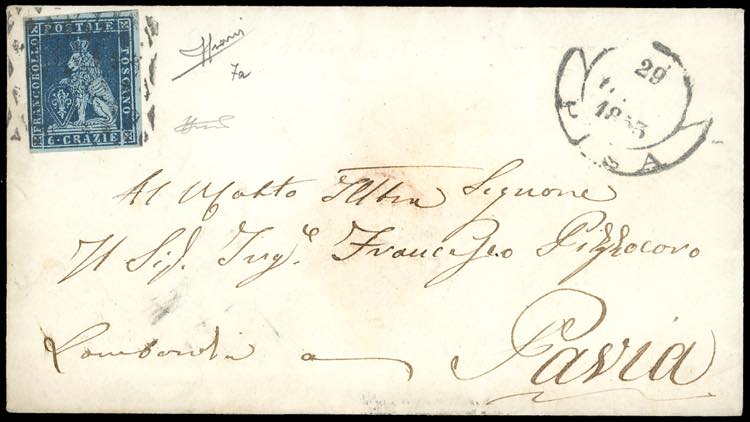 FRANCOBOLLO
POSTALE
TOSCANO
6·CRAZIE
7a
29
1853
PISA
Al Molto Illtre Signore
Il Sig. Ingre. Francesco Pizzocoro
Lombardia a Pavia